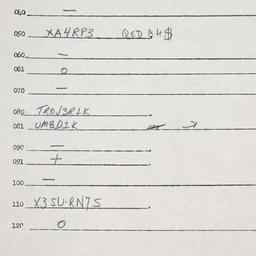 040 —
050 XA4RP3 QED
060 —
061 O
070 —
080
081 UMBD1K
090 —
091 +
100 —
110 X3SU·RN7S
120 O